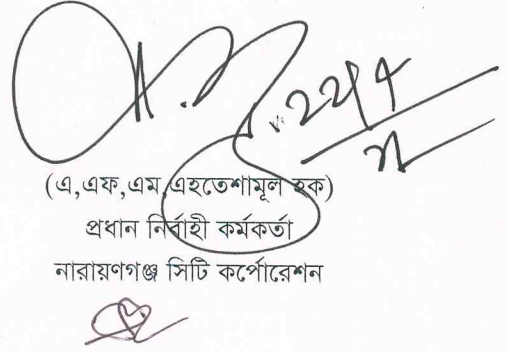 (এ,এফ,এম,এহতেশামুল হক)
প্রধান নির্বাহী কর্মকর্তা
নারায়ণগঞ্জ সিটি কর্পোরেশন